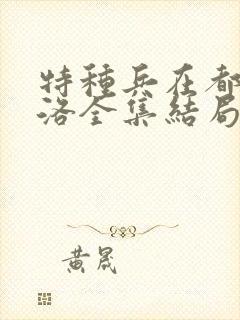 特種兵在都
洛全集結局
黃晟